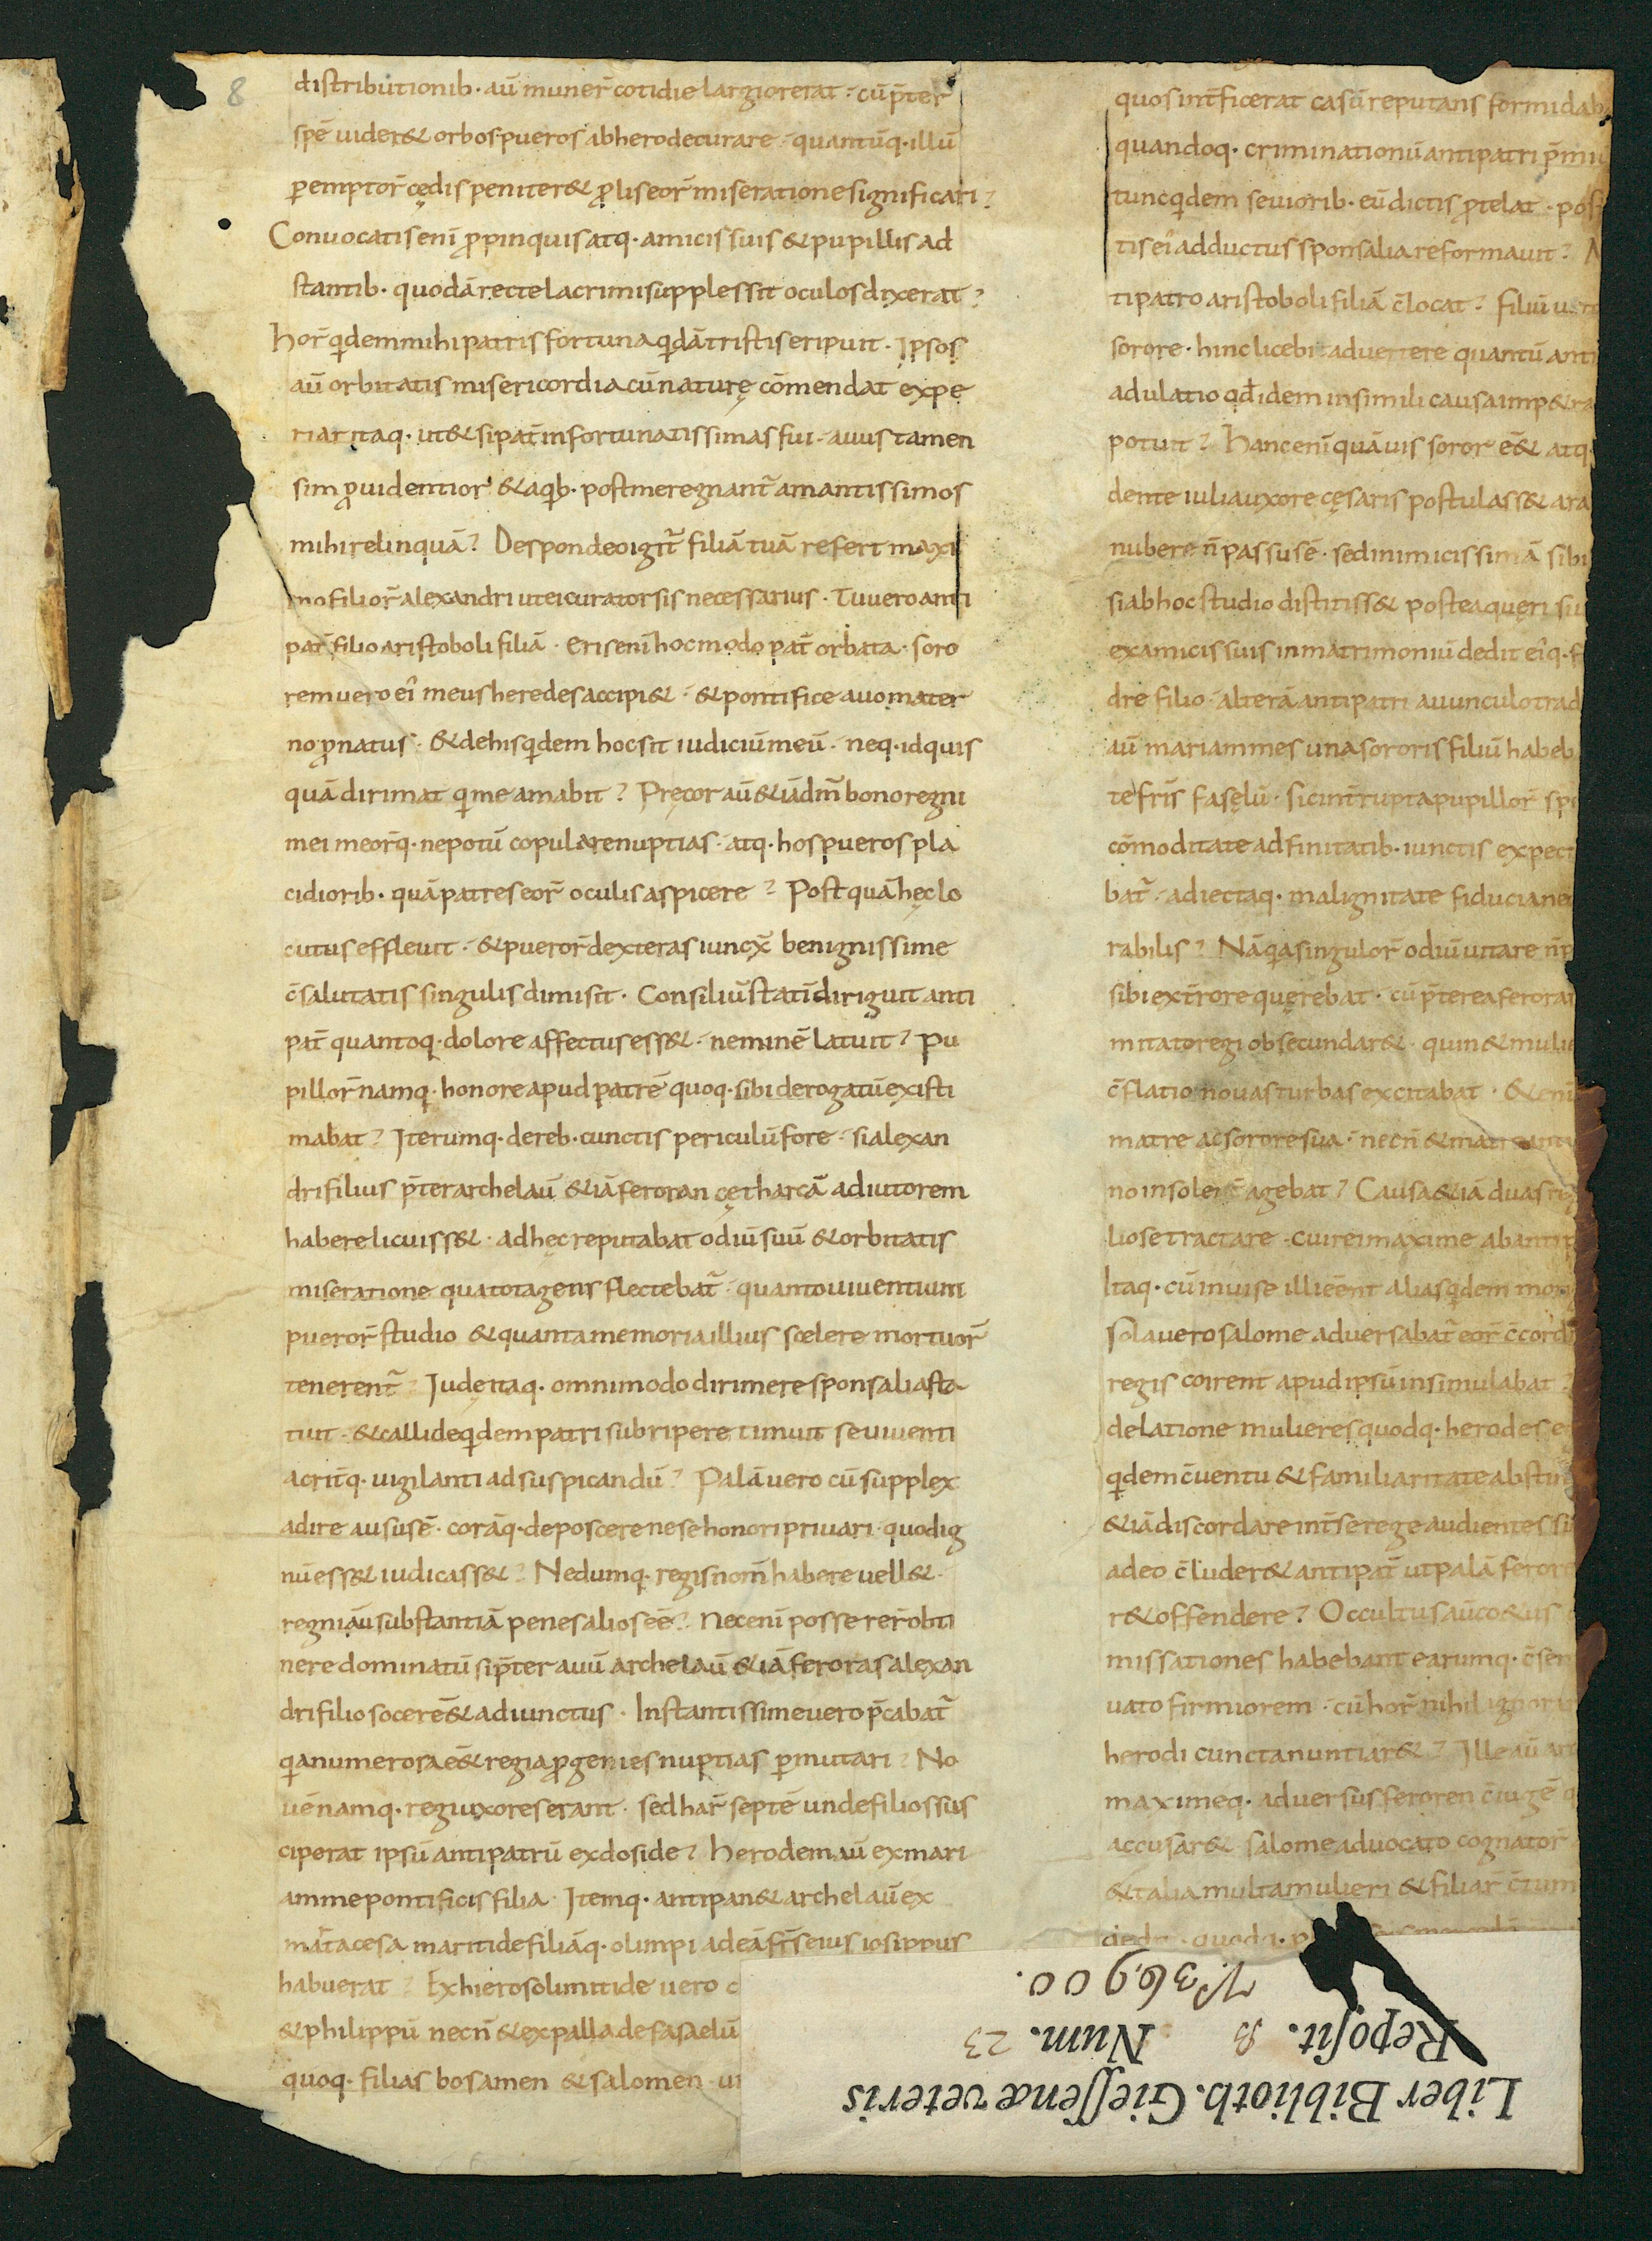 8
distribu&tionib· aū muner̄ cotidie largior erat · cū p̄ter
spē uider& orbos pueros ab herode curare · quantūq· illū
peremptor̄ cędis peniter& p̄ liseor̄ miseratione significari?
Conuocatis enī ꝓpinquis atq· amicis suis & pupillis ad
stantib· quodā recte lacrimis upplessit oculos dixerat?
Hor̄ qͥdem mihi patris fortuna qͥdā tristis eripuit · Ipsos
aū orbitatis misericordia cū naturę cōmendat expe
riar itaq· ut & si pat̄ infortunatissimas fui · auus tamen
sim ꝓuidentior · & aqͥb· post me regnant̄ amantissimos
mihi relinquā? Despondeo igit̄ filiā tuā refert maxi
mo filior̄ alexandri utei curator sis necessarius · Tu uero anti
pat̄ filio aristoboli filiā · eris enī hoc modo pat̄ orbata · soro
rem uero eī meus heredes accipi& · & pontifice auo mater
no ꝓnatus · & de his qͥdem hoc sit iudiciū meū · neq· id quis
quā dirimat qͥ me amabit? Pręcor aū &iā dm̄ bono regni
mei meor̄q· nepotū copulare nuptias · atq· hos pueros pla
cidiorib· quā patres eor̄ oculis aspicere? Post quā hęc lo
cutus effleuit · & pueror̄ dexteras iuncx̄ benignissime
c̄salutatis singulis dimisit · Consiliū statī diriguit anti
pat̄ quantoq· dolore affectus ess& · neminē latuit? Pu
pillor̄ namq· honore apud patrē quoq· sibi derogatū existi
mabat? Iterumq· de reb· cunctis periculū fore · si alexan
dri filius p̄ter archelaū &iā feroran cętharcā adiutorem
habere licuiss& · ad hęc reputabat odiū suū & orbitatis
miseratione qua tota gens flectebat̄ · quanto uiuentium
pueror̄ studio & quanta memoria illius scelere mortuor̄
tenerent̄? Inde itaq· omni modo dirimere sponsalia sta
tuit · & callide qͥdem patri subripere timuit seuienti
acrit̄q· uigilanti ad suspicandū? Palā uero cū supplex
adire ausus ē · corāq· deposcere ne se honori priuari · quo dig
nū ess& iudicass&? Nedumq· regis nom̄ habere uell& ·
regni aū substantiā penes alios eē? Nec enī posse rer̄ obti
nere dominatū si p̄ter auū archelaū &iā feroras alexan
dri filio socer ē& adiunctus · Instantissime uero p̄cabat̄
qͥa numerosa e& regia ꝓgenies nuptias p̄mutari? No
uē namq· regi uxores erant · sed har̄ septē unde filios sus
ciperat ipsū antipatrū ex doside? Herodem aū ex mari
amme pontificis filia · Itemq· antipan & archelaū ex
mat̄tacesa maritide filiāq· olimpiadeā fr̄s eius iosippus
habuerat? Ex hierosolimitide uero
& philippū necn̄ & ex pallade fasaelū
quoq· filias bosamen & salomen ·
quos int̄ficerat casū reputans formidab
quandoq· criminationū antipatri p̄mi
tunc qͥdem seuiorib· eū dictis ꝓtelat · pos
tis eī adductus sponsalia reformauit?
tipatro aristoboli filiā c̄locat? Filiū
sorore · hinc licebit aduertere quantū anti
adulatio qd̄ idem in simili causa imp&ra
potuit? Hanc enī quāuis soror ē& atq·
dente iulia uxore cęsaris postulass& ara
nubere n̄ passus ē · sed inimicissimā sibi
si ab hoc studio distitiss& postea quęri su
ex amicis suis in matrimoniū dedit eīq· f
dre filio · alterā antipatri auunculo trad
aū mariammes una sororis filiū habeb
te fr̄is fasęlū · sic int̄rupta pupillor̄ sp
cōmoditate adfinitatib· iunctis expec
bat̄ · adiectaq· malignitate fiducia ne
rabilis? Nā qͥa singulor̄ odiū uitare n̄ p
sibi ex t̄rore quęrebat · cū p̄terea feroras
mitato regi obsecundar& · quin & mulie
c̄flatio nouas turbas excitabat · & enī
matre ac sorore sua · necn̄ & matre anti
no insolent̄ agebat? Causa &iā duas
liose tractare · cui rei maxime ab antip
Itaq· cū inuise illi eēnt alias qͥdem
Sola uero salome aduersabat̄ eor̄ c̄cord
regis coirent apud ipsū insimulabat?
delatione mulieres quodq· herodes
qͥdem c̄uentu & familiaritate abstu
&iā discordare int̄ se rege audientes si
adeo c̄luder& antipat̄ ut palā feror
r& offendere? Occultus aū co&us
missationes habebant earumq· c̄sen
uato firmiorem · cū hor̄ nihil ignor
herodi cuncta nuntiar&? Ille aū
maximeq· aduersus feroren c̄iugē
accusar& salome aduocato cognator̄
& talia multa mulieri & filiar̄ c̄tum
Liber Biblioth. Gieſſenæ veteris
Repoſit. B Num. 23
V. 36,900.